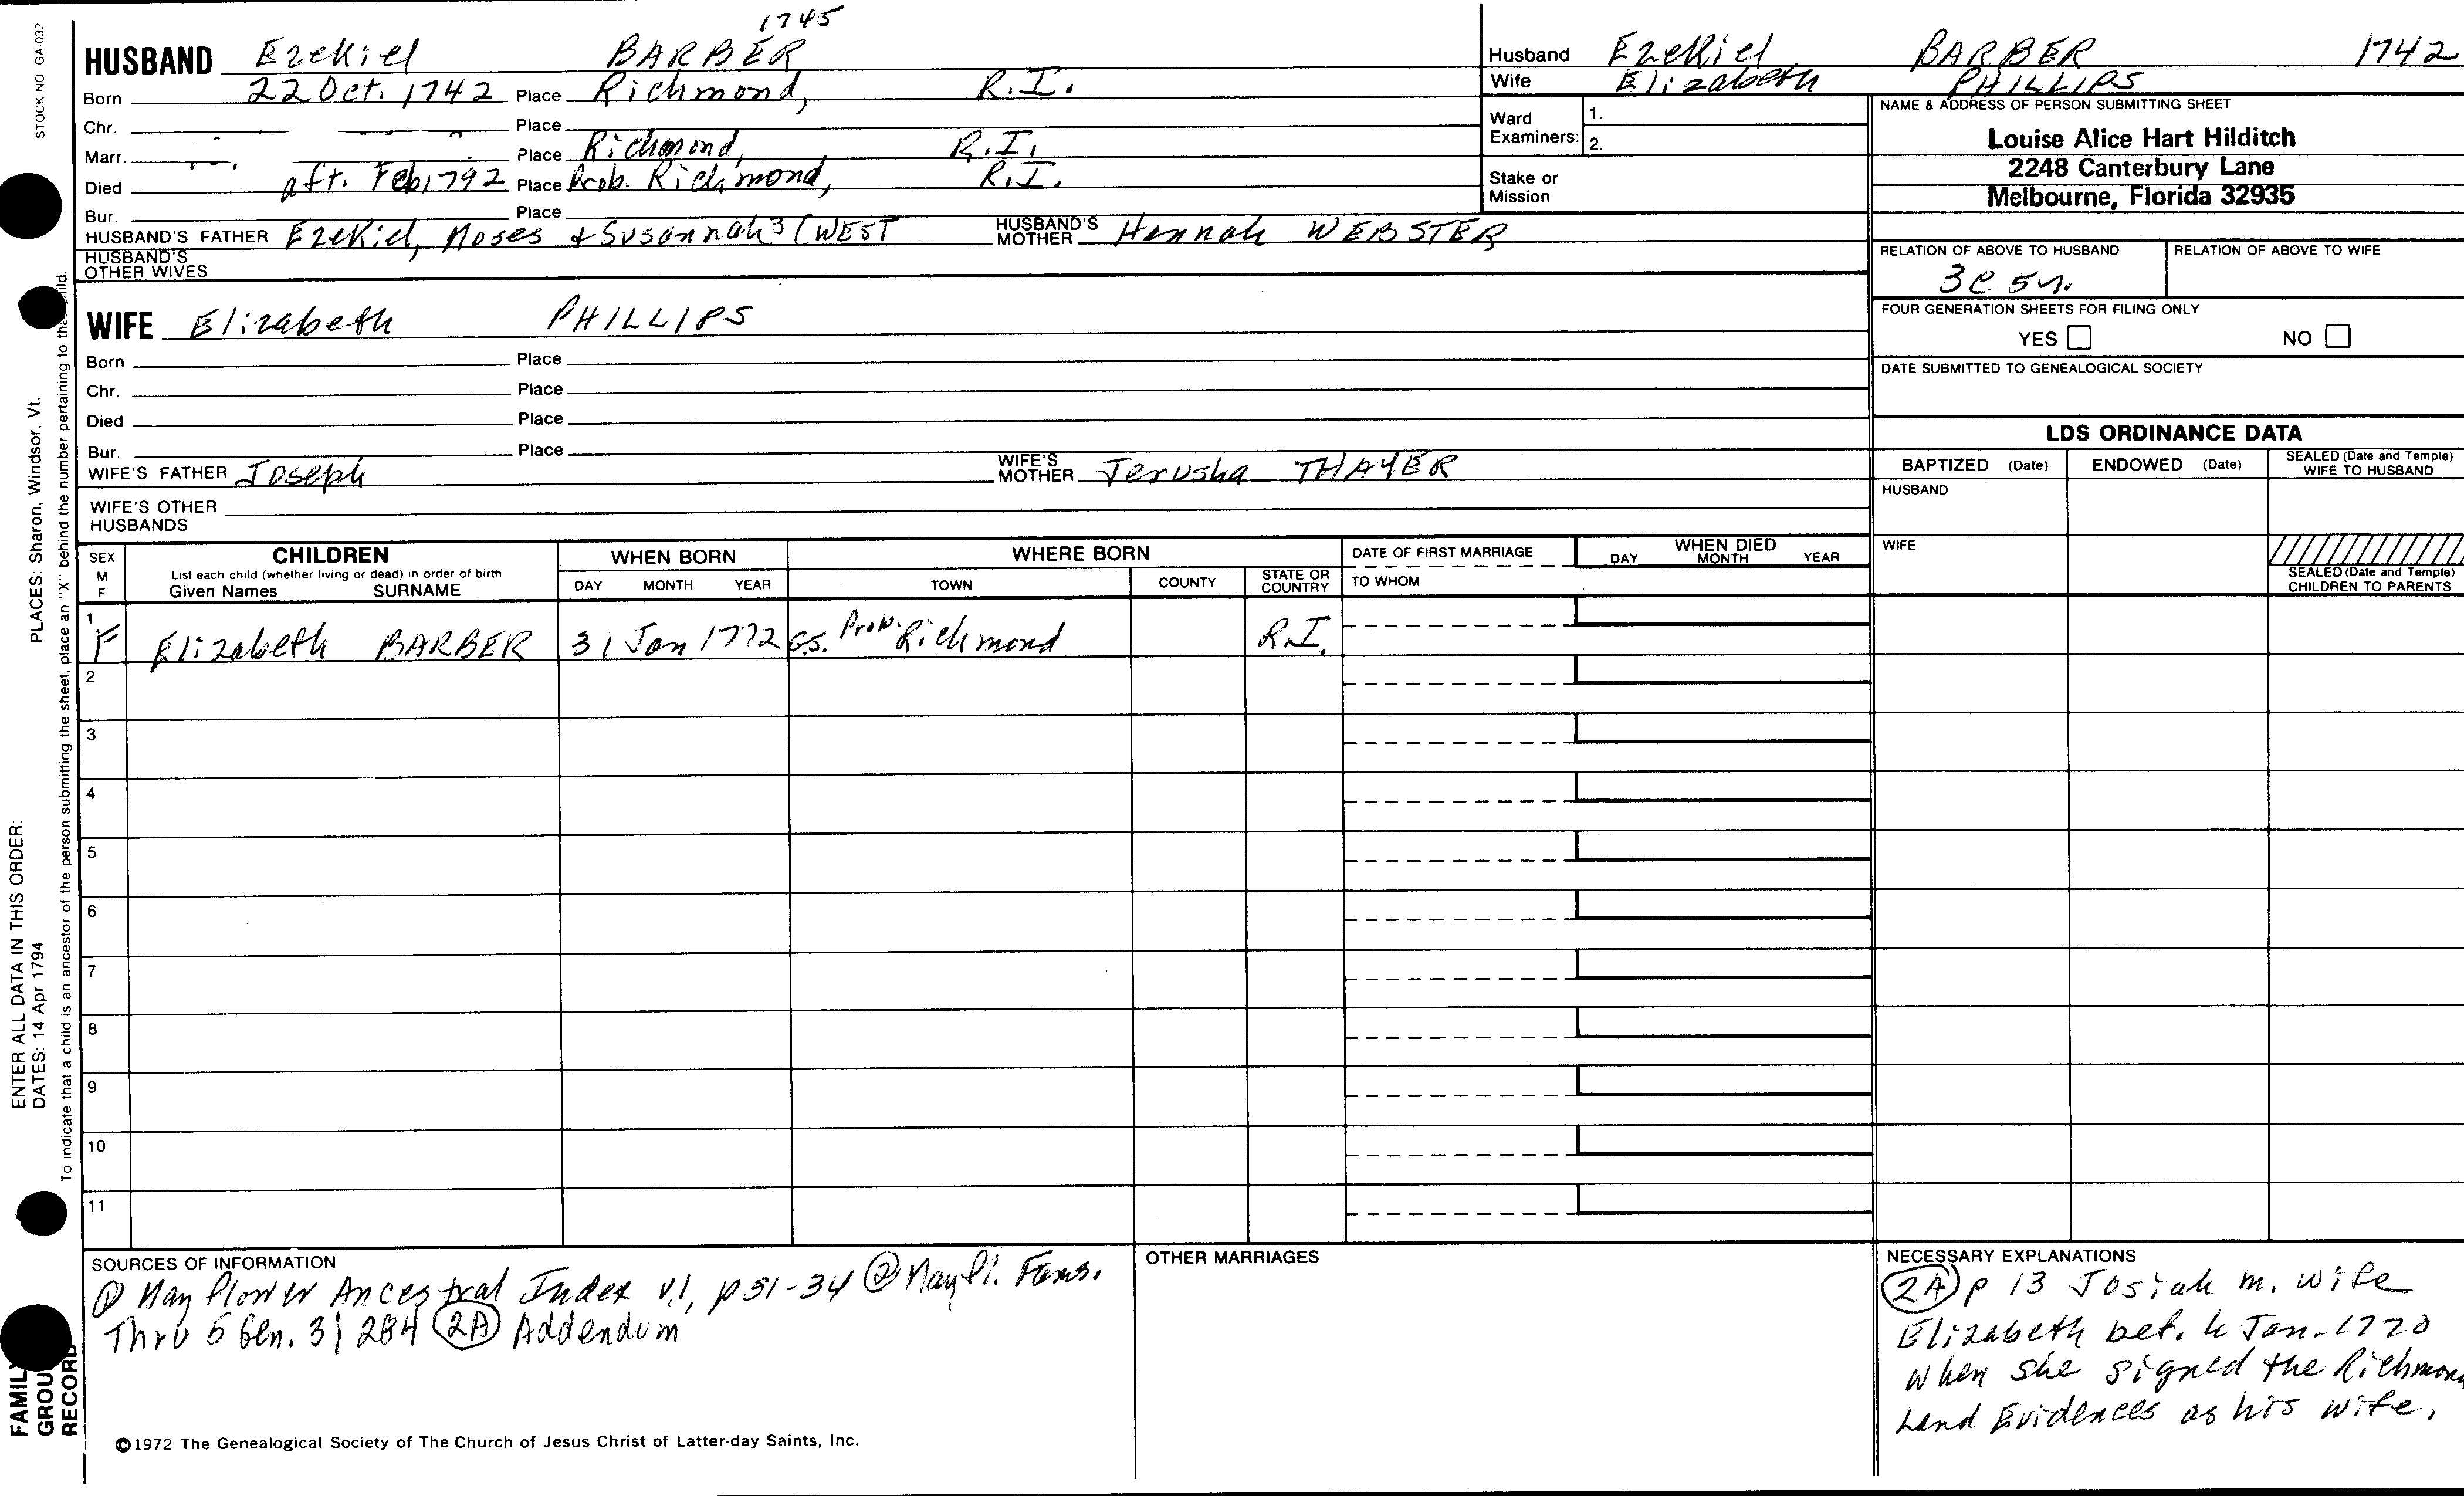 1745
HUSBAND Ezekiel BARBER
Born 22 Oct. 1742 Place Richmond, R.I.
Chr. Place
Marr. Place Richmond, R.I.
Died aft. Feb 1792 Place Prob. Richmond, R.I.
Bur. Place
HUSBAND'S FATHER Ezekiel, Moses & Susannah3 (WEST HUSBAND'S MOTHER Hannah WEBSTER
HUSBAND'S OTHER WIVES
WIFE Elizabeth PHILLIPS
Born Place
Chr. Place
Died Place
Bur. Place
WIFE'S FATHER Joseph WIFE'S MOTHER Jerusha THAYER
WIFE'S OTHER HUSBANDS
Husband Ezekiel BARBER 1742
Wife Elizabeth PHILLIPS
Ward Examiners: 1.
2.
Stake or Mission
NAME & ADDRESS OF PERSON SUBMITTING SHEET
Louise Alice Hart Hilditch
2248 Canterbury Lane
Melbourne, Florida 32935
RELATION OF ABOVE TO HUSBAND RELATION OF ABOVE TO WIFE
3c 5r.
FOUR GENERATION SHEETS FOR FILING ONLY
YES NO
DATE SUBMITTED TO GENEALOGICAL SOCIETY
LDS ORDINANCE DATA
BAPTIZED (Date) ENDOWED (Date) SEALED (Date and Temple) WIFE TO HUSBAND
HUSBAND
WIFE
SEALED (Date and Temple) CHILDREN TO PARENTS
SEX M F CHILDREN WHEN BORN WHERE BORN DATE OF FIRST MARRIAGE WHEN DIED
List each child (whether living or dead) in order of birth
Given Names SURNAME DAY MONTH YEAR TOWN COUNTY STATE OR COUNTRY TO WHOM DAY MONTH YEAR
1 F Elizabeth BARBER 31 Jan 1772 G.S. Prob. Richmond R.I.
2
3
4
5
6
7
8
9
10
11
SOURCES OF INFORMATION
① Mayflower Ancestral Index v.1, p 31-34 ② Mayfl. Fams.
Thru 5 Gen. 3| 284 (2A) Addendum
OTHER MARRIAGES
NECESSARY EXPLANATIONS
(2A) p 13 Josiah m. wife
Elizabeth bef. 4 Jan. 1770
when she signed the Richmond
Land Evidences as his wife.
©1972 The Genealogical Society of The Church of Jesus Christ of Latter-day Saints, Inc.
STOCK NO GA-032
PLACES: Sharon, Windsor, Vt.
ENTER ALL DATA IN THIS ORDER:
DATES: 14 Apr 1794
To indicate that a child is an ancestor of the person submitting the sheet, place an "X" behind the number pertaining to that child.
FAMILY
GROUP
RECORD